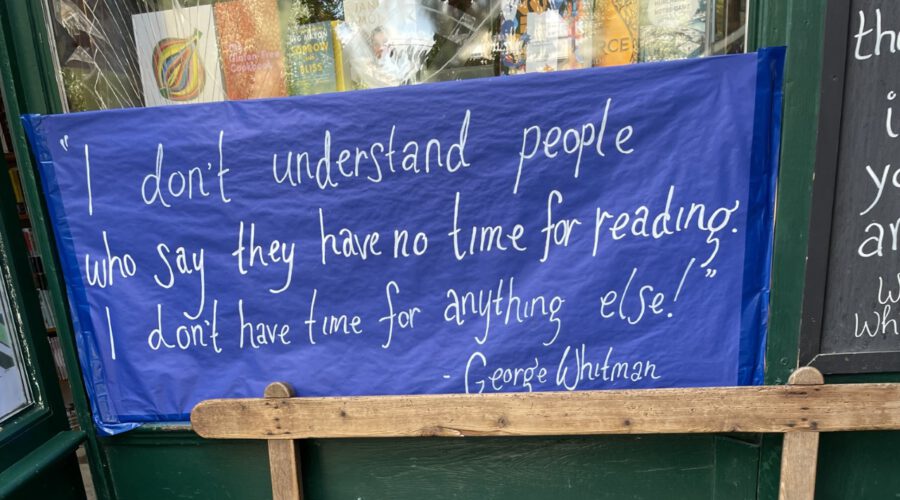 Gluten-Free
Cookbook
SORROW
BLISS
"I don't understand people
who say they have no time for reading.
I don't have time for anything else!"
- George Whitman